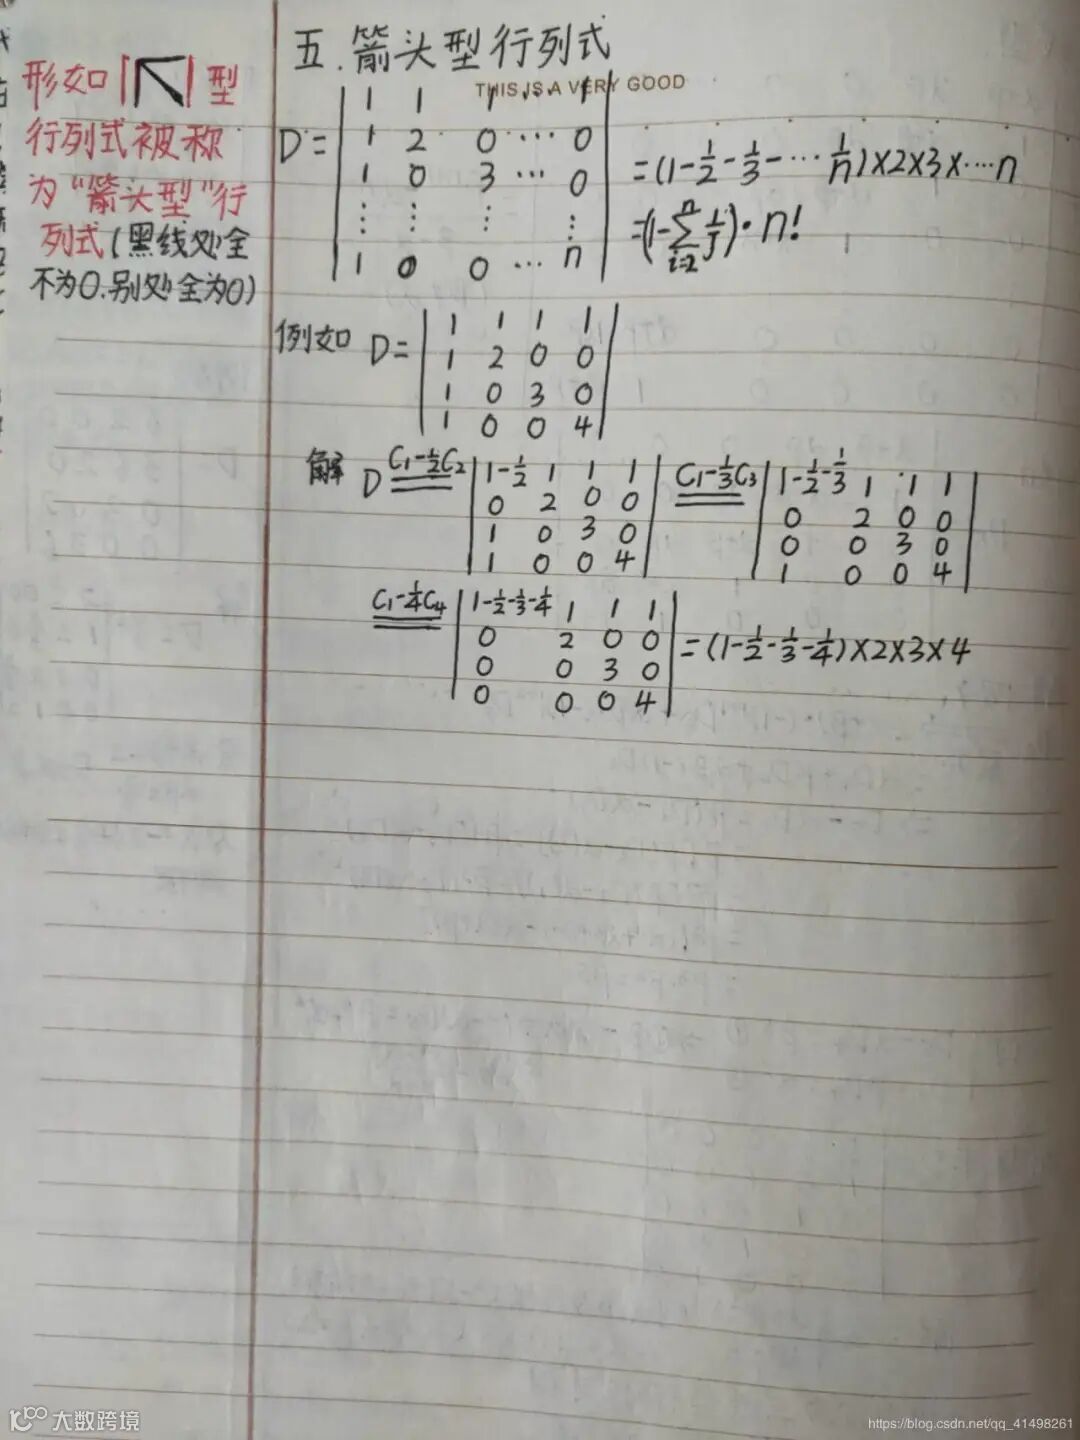 五.箭头型行列式
THIS IS A VERY GOOD
形如| |型
行列式被称
为“箭头型”行
列式(黑线处全
不为0.别处全为0)
D= | 1 1 1 … 1 |
| 1 2 0 … 0 |
| 1 0 3 … 0 |
| ⋮ ⋮ ⋮ ⋮ |
| 1 0 0 … n |
=(1-1/2-1/3-…1/n)×2×3×…·n
=(1-∑_{i=2}^{n} 1/j)·n!
例如 D= | 1 1 1 1 |
| 1 2 0 0 |
| 1 0 3 0 |
| 1 0 0 4 |
解 D C₁-1/2C₂ | 1-1/2 1 1 1 |
| 0 2 0 0 |
| 1 0 3 0 |
| 1 0 0 4 |
C₁-1/3C₃ | 1-1/2-1/3 1 1 1 |
| 0 2 0 0 |
| 0 0 3 0 |
| 1 0 0 4 |
C₁-1/4C₄ | 1-1/2-1/3-1/4 1 1 1 |
| 0 2 0 0 |
| 0 0 3 0 |
| 0 0 0 4 |
=(1-1/2-1/3-1/4)×2×3×4
大数跨境
https://blog.csdn.net/qq_41498261